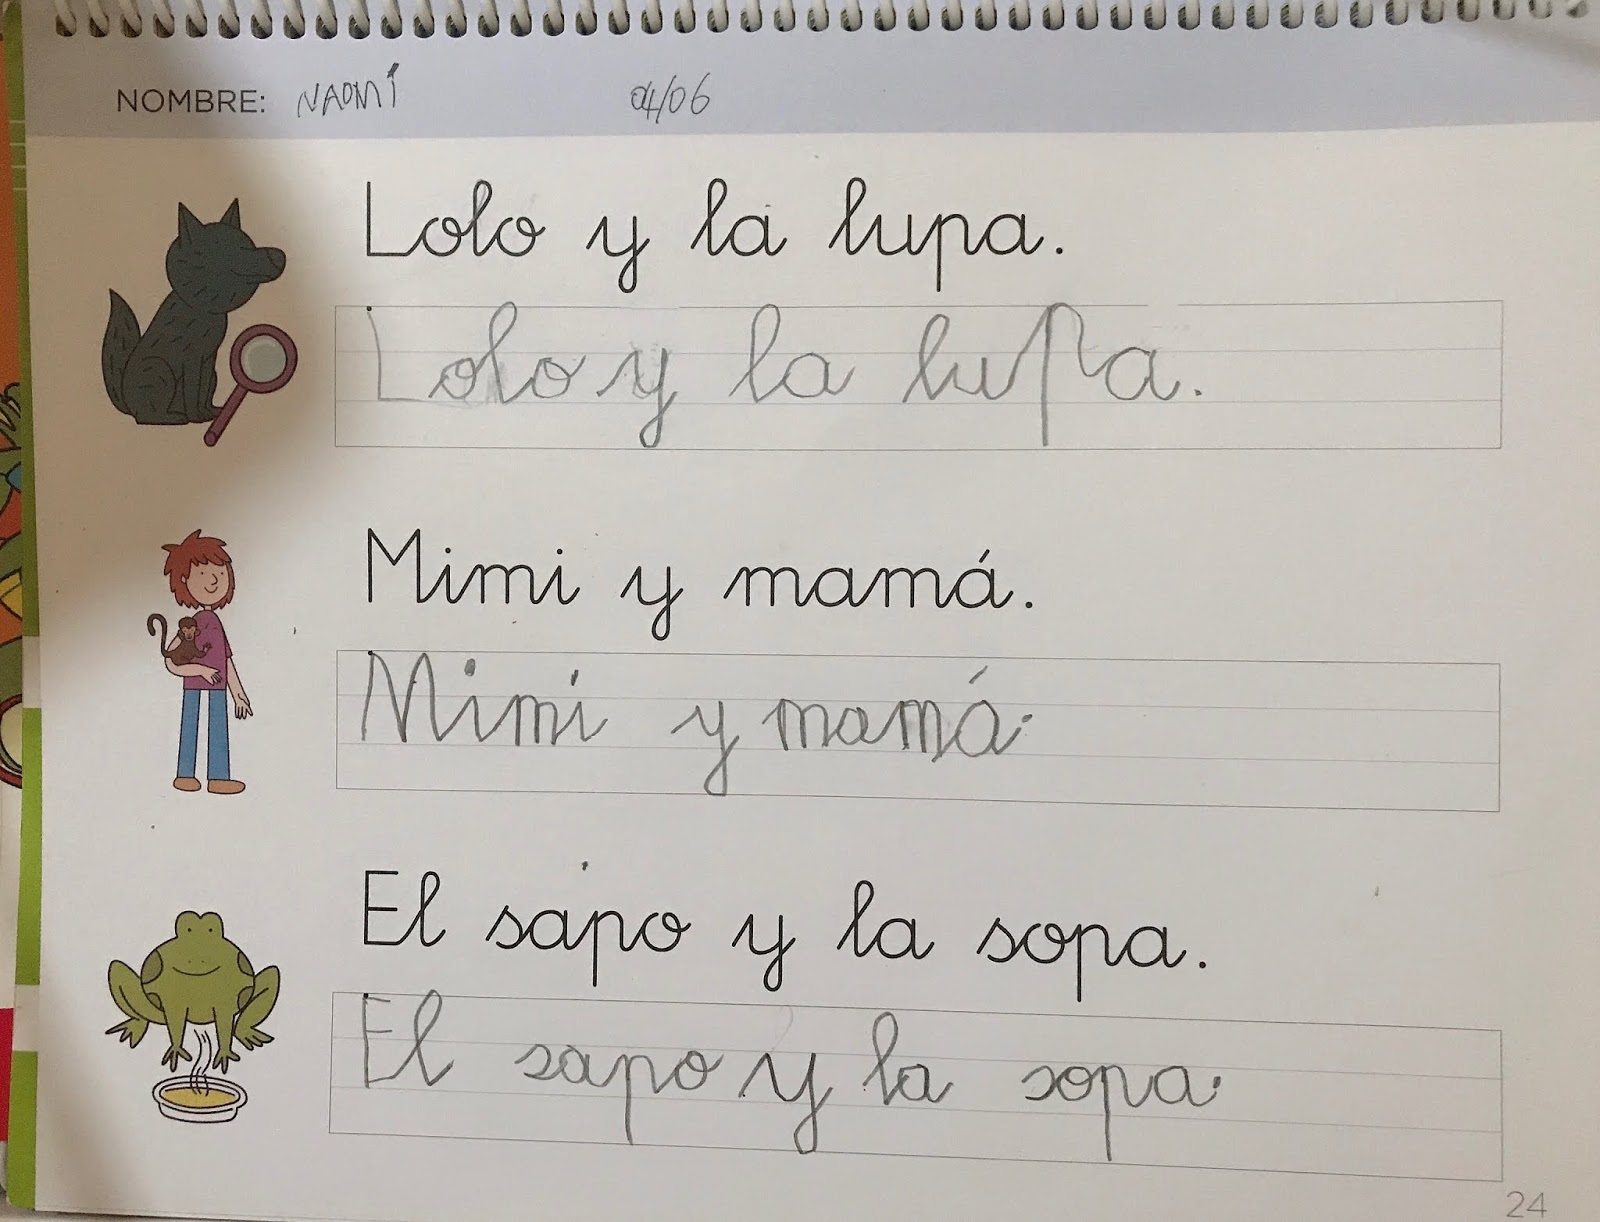 NOMBRE: NAOMÍ 04/06
Lolo y la lupa.
Lolo y la lupa.
Mimi y mamá.
Mimi y mamá.
El sapo y la sopa.
El sapo y la sopa.
24